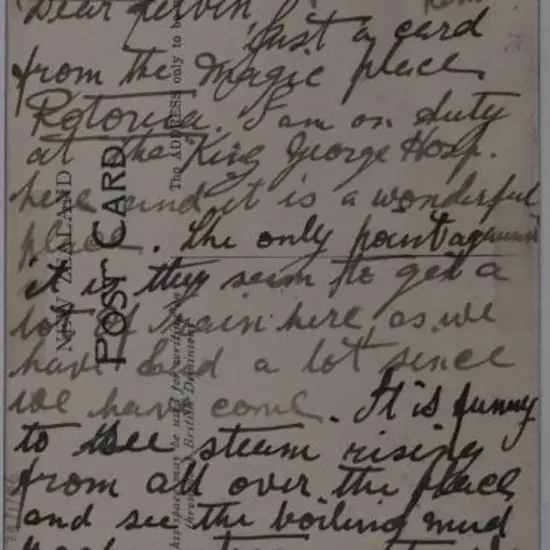 Dear
Just a card
from the magic place
Rotorua. I am on duty
at the King George Hosp.
here and it is a wonderful
place. The only point against
it is they seem to get a
lot of rain here as we
have had a lot since
we have come. It is funny
to see steam rising
from all over the place
and see the boiling mud
NEW ZEALAND
POST CARD
The ADDRESS only to be